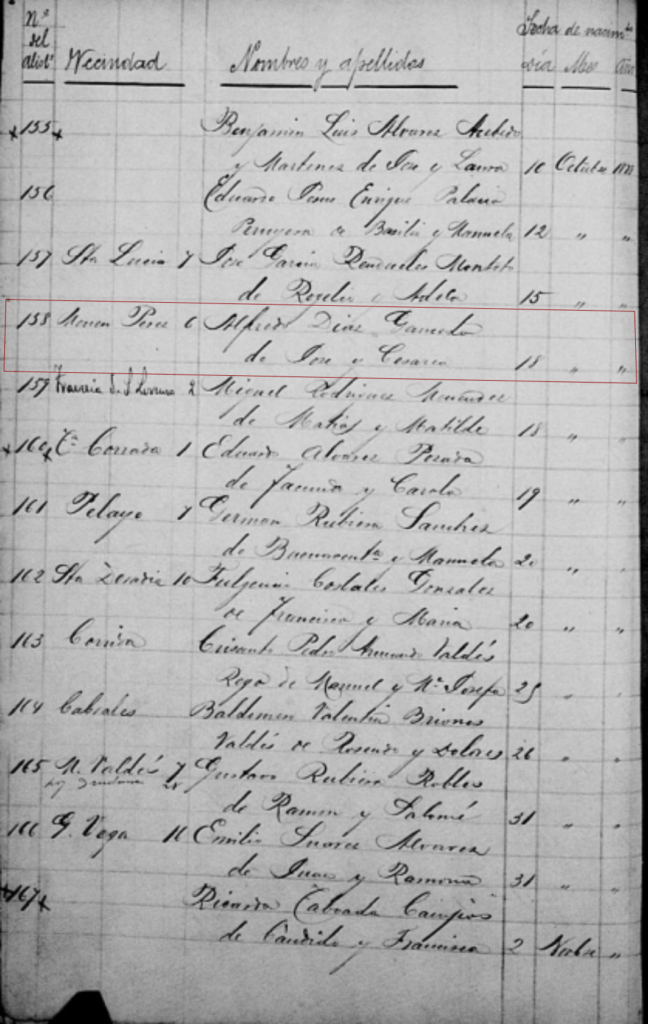 Nº del alistº Vecindad Nombres y apellidos Fecha de nacimto Día Mes Año
155 Benjamin Luis Alvarez Acebedo
y Martinez de Jose y Laura 10 Octubre
156 Eduardo Jesus Enrique Palacio
de Basilio y Manuela 12 " "
157 Sta Lucia 7 Jose Garcia Montoto
de Rogelio y Adela 15 " "
158 6 Alfredo Diaz Ganceda
de Jose y Cesarea 18 " "
159 2 Miguel Rodriguez Menendez
de Matias y Matilde 18 " "
160 Tª Corrada 1 Eduardo Alvarez Posada
de Facundo y Carola 19 " "
161 Pelayo 7 German Rubiera Sanchez
de y Manuela 20 " "
162 Sta 10 Fulgencio Costales Gonzalez
de Francisco y Maria 20 " "
163 Corrida Crisanto Pedro Armando Valdés
Roza de Manuel y Mª Josefa 25 " "
164 Cabrales Baldomero Valentin Briones
Valdés de Rosendo y Dolores 26 " "
165 M. Valdés 7 Gustavo Rubiera Robles
de Ramon y Salomé 31 " "
166 G. Vega 11 Emilio Suarez Alvarez
de Juan y Ramona 31 " "
167 Ricardo Taboada Campos
de Cándido y Francisca 2 Novbre "